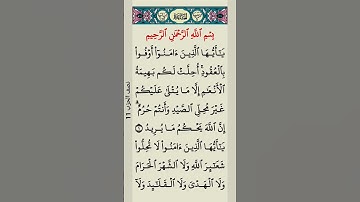 بِسْمِ ٱللَّهِ ٱلرَّحْمَٰنِ ٱلرَّحِيمِ
يَٰٓأَيُّهَا ٱلَّذِينَ ءَامَنُوٓا۟ أَوْفُوا۟
بِٱلْعُقُودِ ۚ أُحِلَّتْ لَكُم بَهِيمَةُ
ٱلْأَنْعَٰمِ إِلَّا مَا يُتْلَىٰ عَلَيْكُمْ
غَيْرَ مُحِلِّى ٱلصَّيْدِ وَأَنتُمْ حُرُمٌ ۗ
إِنَّ ٱللَّهَ يَحْكُمُ مَا يُرِيدُ ١
يَٰٓأَيُّهَا ٱلَّذِينَ ءَامَنُوا۟ لَا تُحِلُّوا۟
شَعَٰٓئِرَ ٱللَّهِ وَلَا ٱلشَّهْرَ ٱلْحَرَامَ
وَلَا ٱلْهَدْىَ وَلَا ٱلْقَلَٰٓئِدَ وَلَآ
نصف الحزب 11